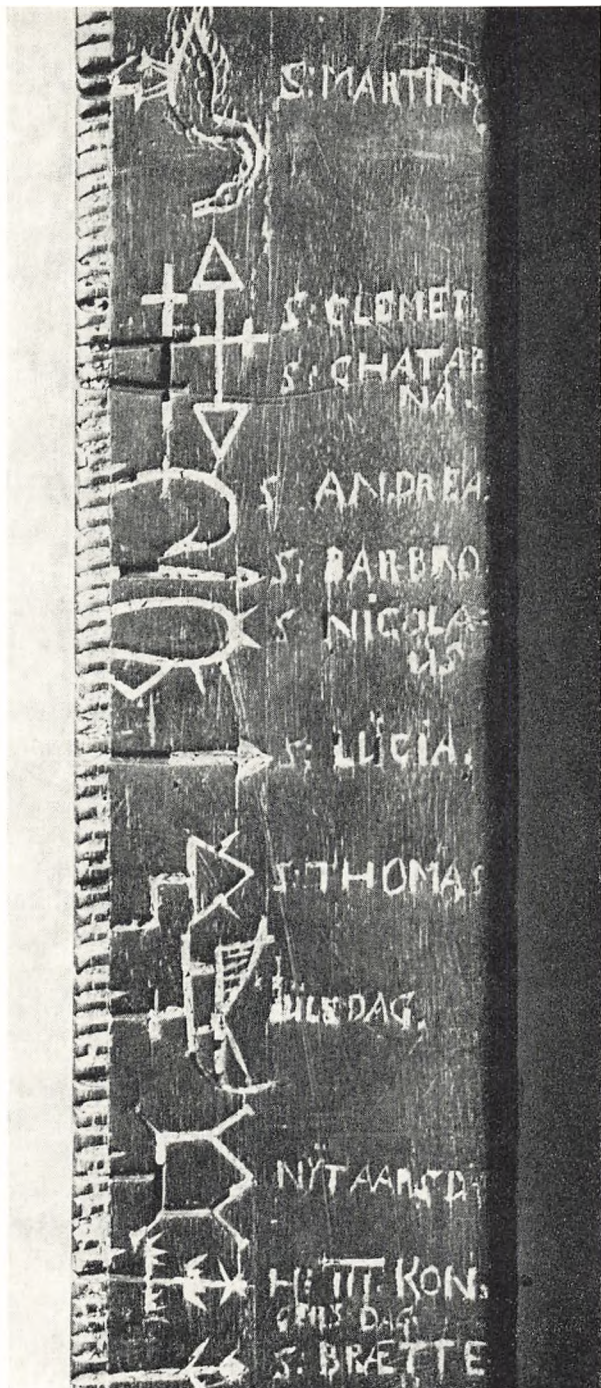 S: MARTIN
S: CLEMET
S: CHATAR
NA
S ANDREA
S: BARBRO
S NICOLA=
US
S: LÜCIA.
S: THOMAS
DAG.
NŸT AARS DA
H: III. KON.
DAG.
S: BRÆTTE